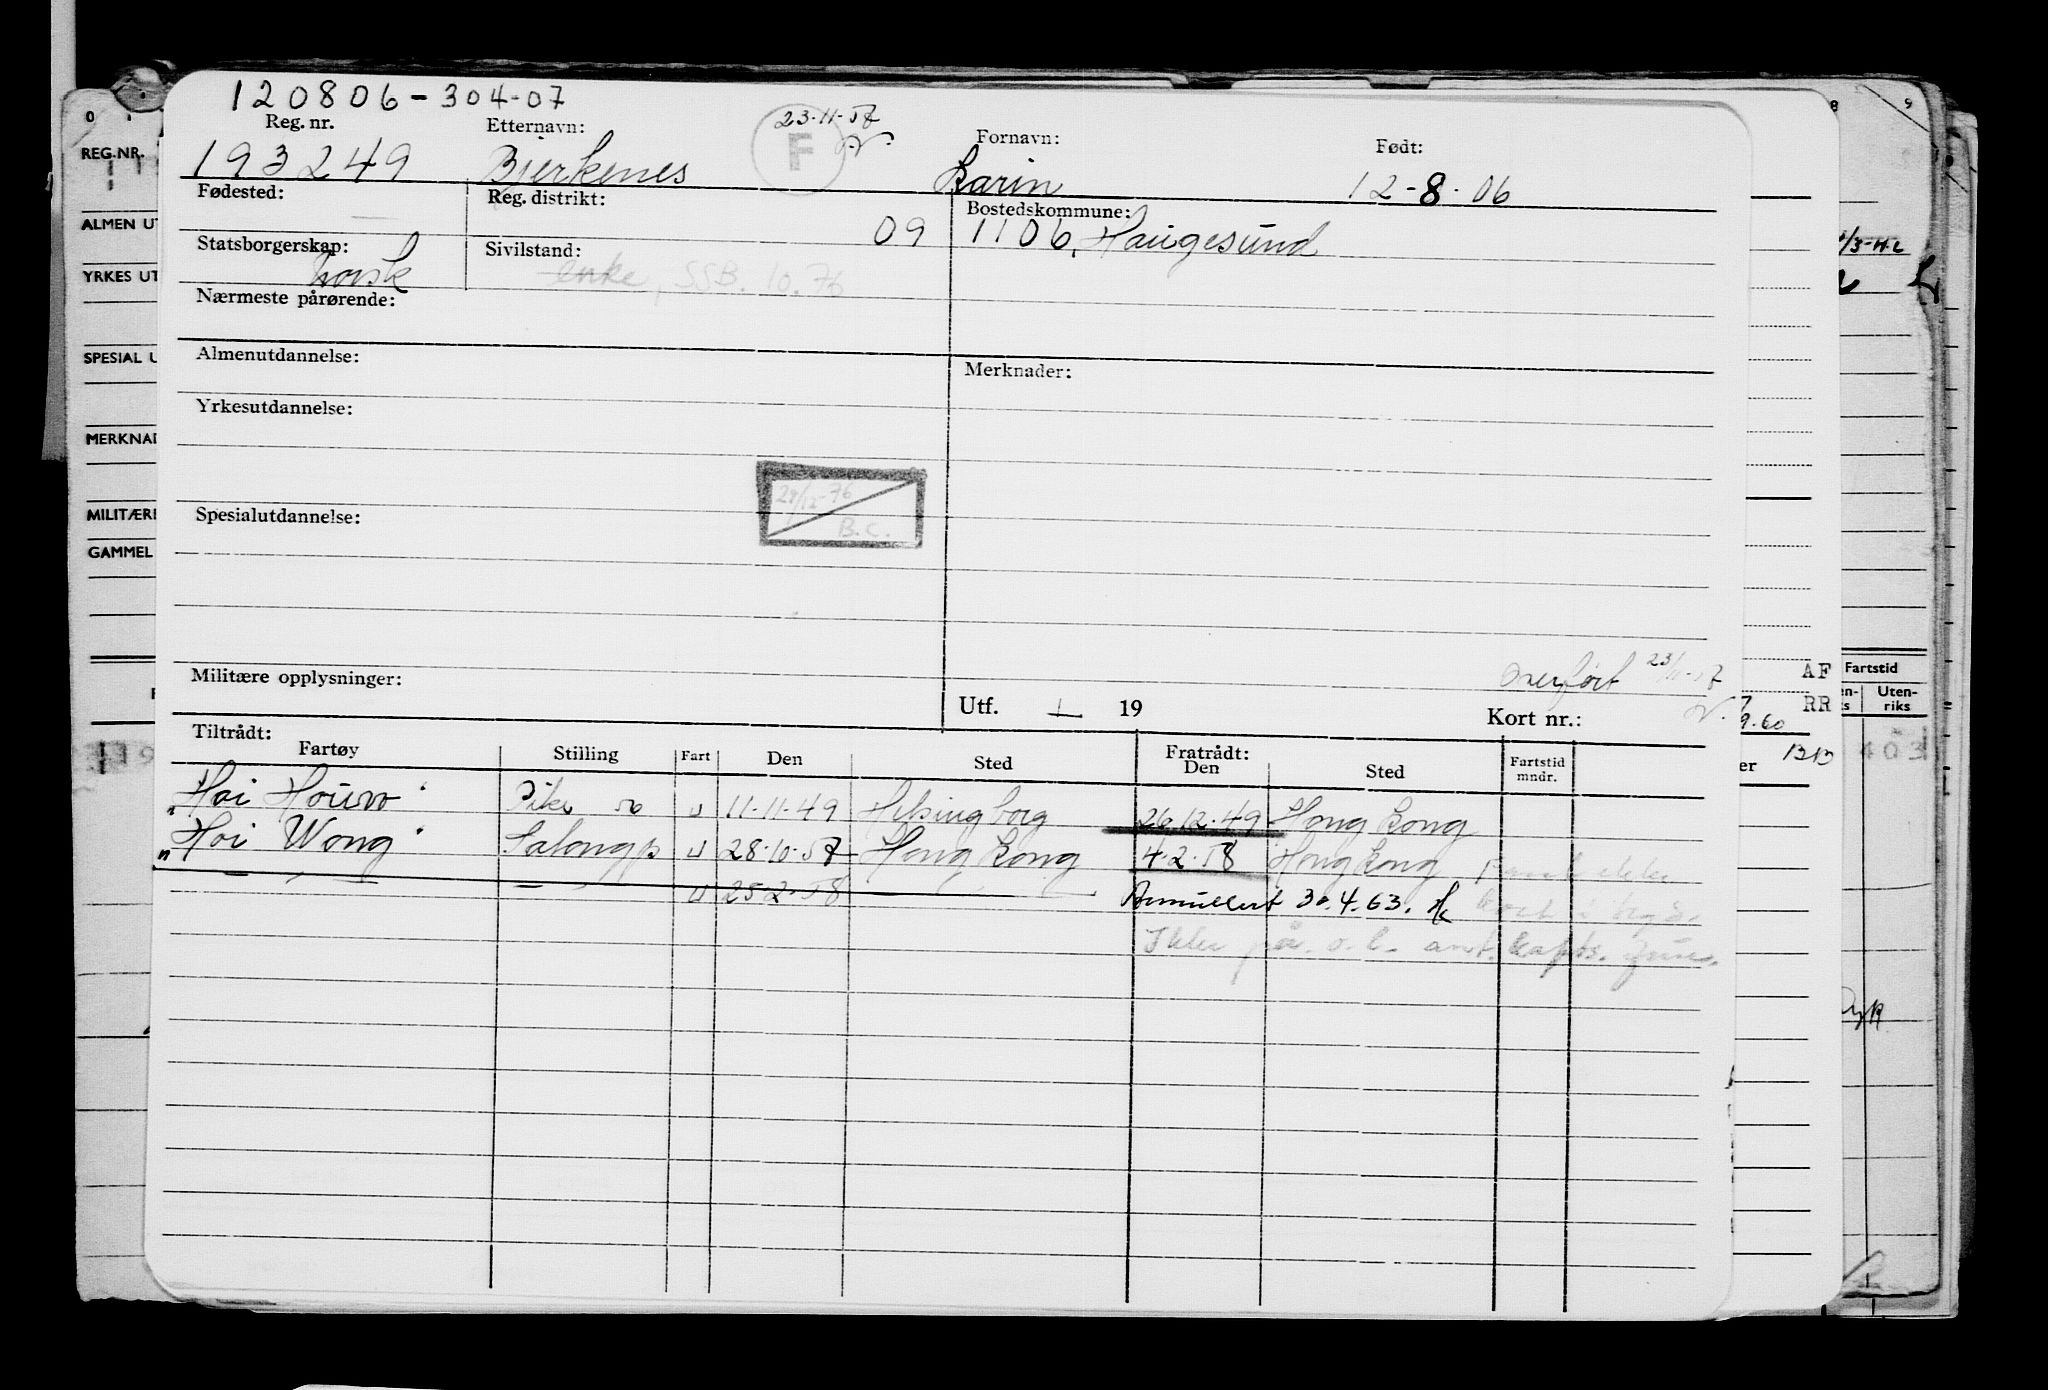 120806-304-07
Reg. nr. Etternavn: 23-11-57 Fornavn: Født:
193249 Bjerkenes F Karin 12-8-06
Fødested: Reg. distrikt: 09 Bostedskommune:
1106, Haugesund
Statsborgerskap: norsk Sivilstand: enke, SSB. 10.76
Nærmeste pårørende:
Almenutdannelse: Merknader:
Yrkesutdannelse:
29/12-76
B.C.
Spesialutdannelse:
Militære opplysninger: overført 23/11-57
Utf. / 19 Kort nr.:
Tiltrådt: Fratrådt:
Fartøy Stilling Fart Den Sted Den Sted Fartstid mndr.
"Hoi Houw" Pike U 11-11-49 Helsingborg 26.12.49 Hong Kong
"Hoi Wong" Salongp U 28-10-57 Hong Kong 4.2.58 Hong Kong
U 25-2-58 Annullert 30.4.63. Hk
Ikke på
REG.NR.
ALMEN UT
YRKES UT
SPESIAL U
MERKNAD
MILITÆRE
GAMMEL
0
8 9
AF Fartstid
RR Uten-
riks
9.60
1213 403
er